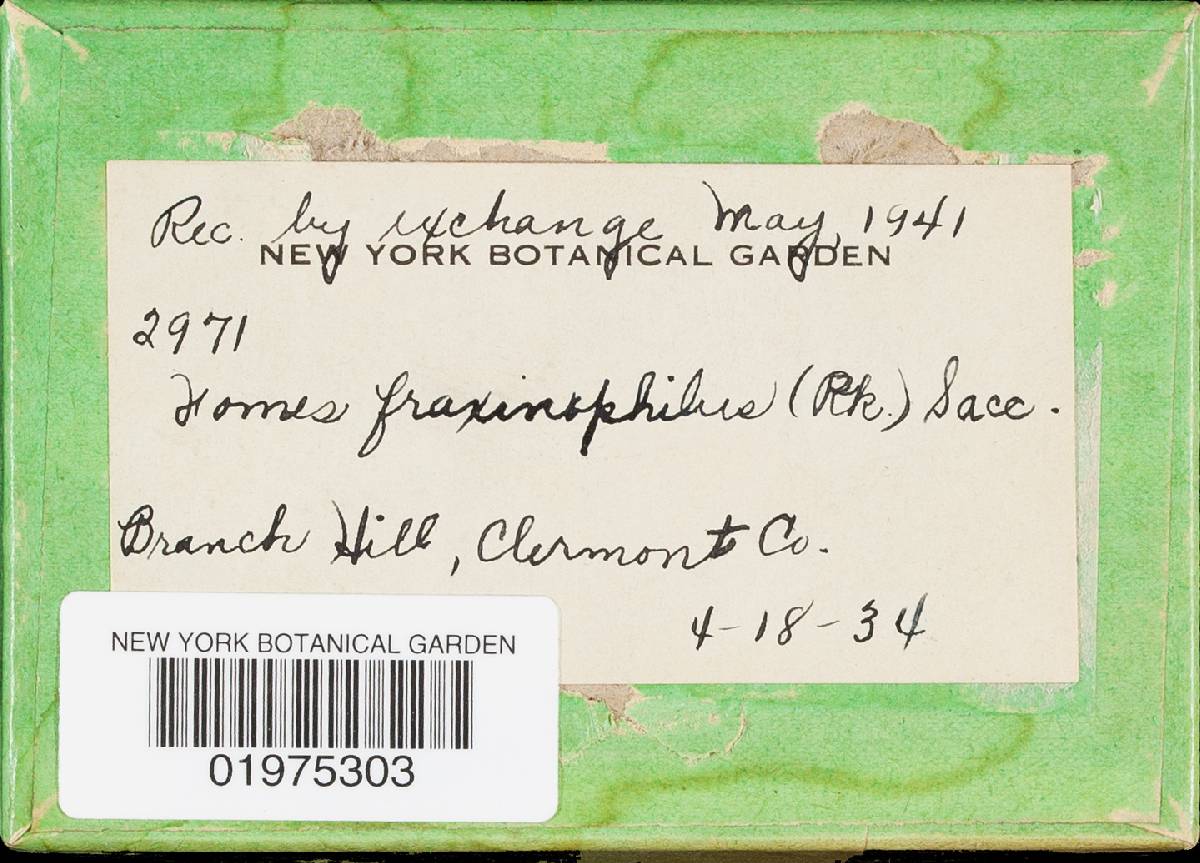 Rec. by exchange May, 1941
NEW YORK BOTANICAL GARDEN
2971
Fomes fraxinophilus (Pk.) Sacc.
Branch Hill, Clermont Co.
4-18-34
NEW YORK BOTANICAL GARDEN
01975303